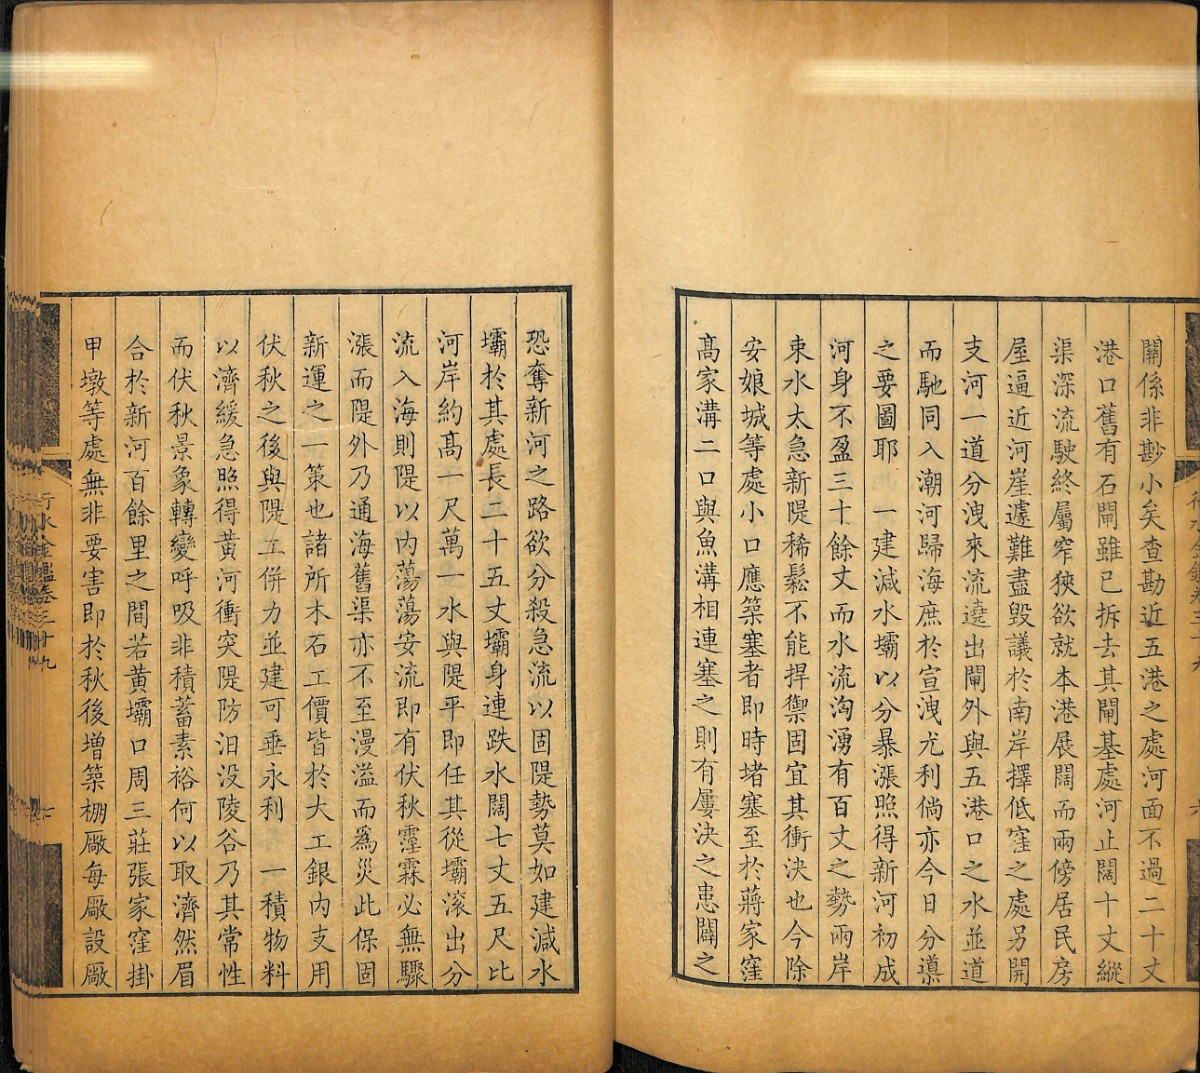 關係非尠小矣查勘近五港之處河面不過二十丈
港口舊有石閘雖已拆去其閘基處河止闊十丈縱
渠深流駛終屬窄狹欲就本港展闊而兩傍居民房
屋逼近河崖遽難盡毀議於南岸擇低窪之處另開
支河一道分洩來流遶出閘外與五港口之水並道
而馳同入潮河歸海庶於宣洩尤利倘亦今日分導
之要圖耶 一建減水壩以分暴漲照得新河初成
河身不盈三十餘丈而水流洶湧有百丈之勢兩岸
束水太急新隄稀鬆不能捍禦固宜其衝決也今除
安娘城等處小口應築塞者即時堵塞至於蔣家窪
高家溝二口與魚溝相連塞之則有屢決之患闢之
恐奪新河之路欲分殺急流以固隄勢莫如建減水
壩於其處長二十五丈壩身連跌水闊七丈五尺比
河岸約高一尺萬一水與隄平即任其從壩滚出分
流入海則隄以內蕩蕩安流即有伏秋霪霖必無驟
漲而隄外乃通海舊渠亦不至漫溢而為災此保固
新運之一策也諸所木石工價皆於大工銀內支用
伏秋之後與隄工併力並建可垂永利 一積物料
以濟緩急照得黄河衝突隄防汨没陵谷乃其常性
而伏秋景象轉變呼吸非積蓄素裕何以取濟然眉
合於新河百餘里之間若黄壩口周三莊張家窪掛
甲墩等處無非要害即於秋後增築棚廠每廠設廠
行水金鑑卷三十九